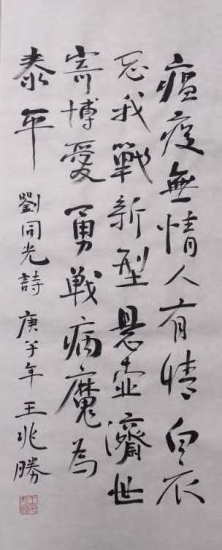 瘟疫無情人有情白衣
忘我戰新型懸壺濟世
寄博愛勇戰病魔為
泰年
劉同光詩 庚子年 王兆勝